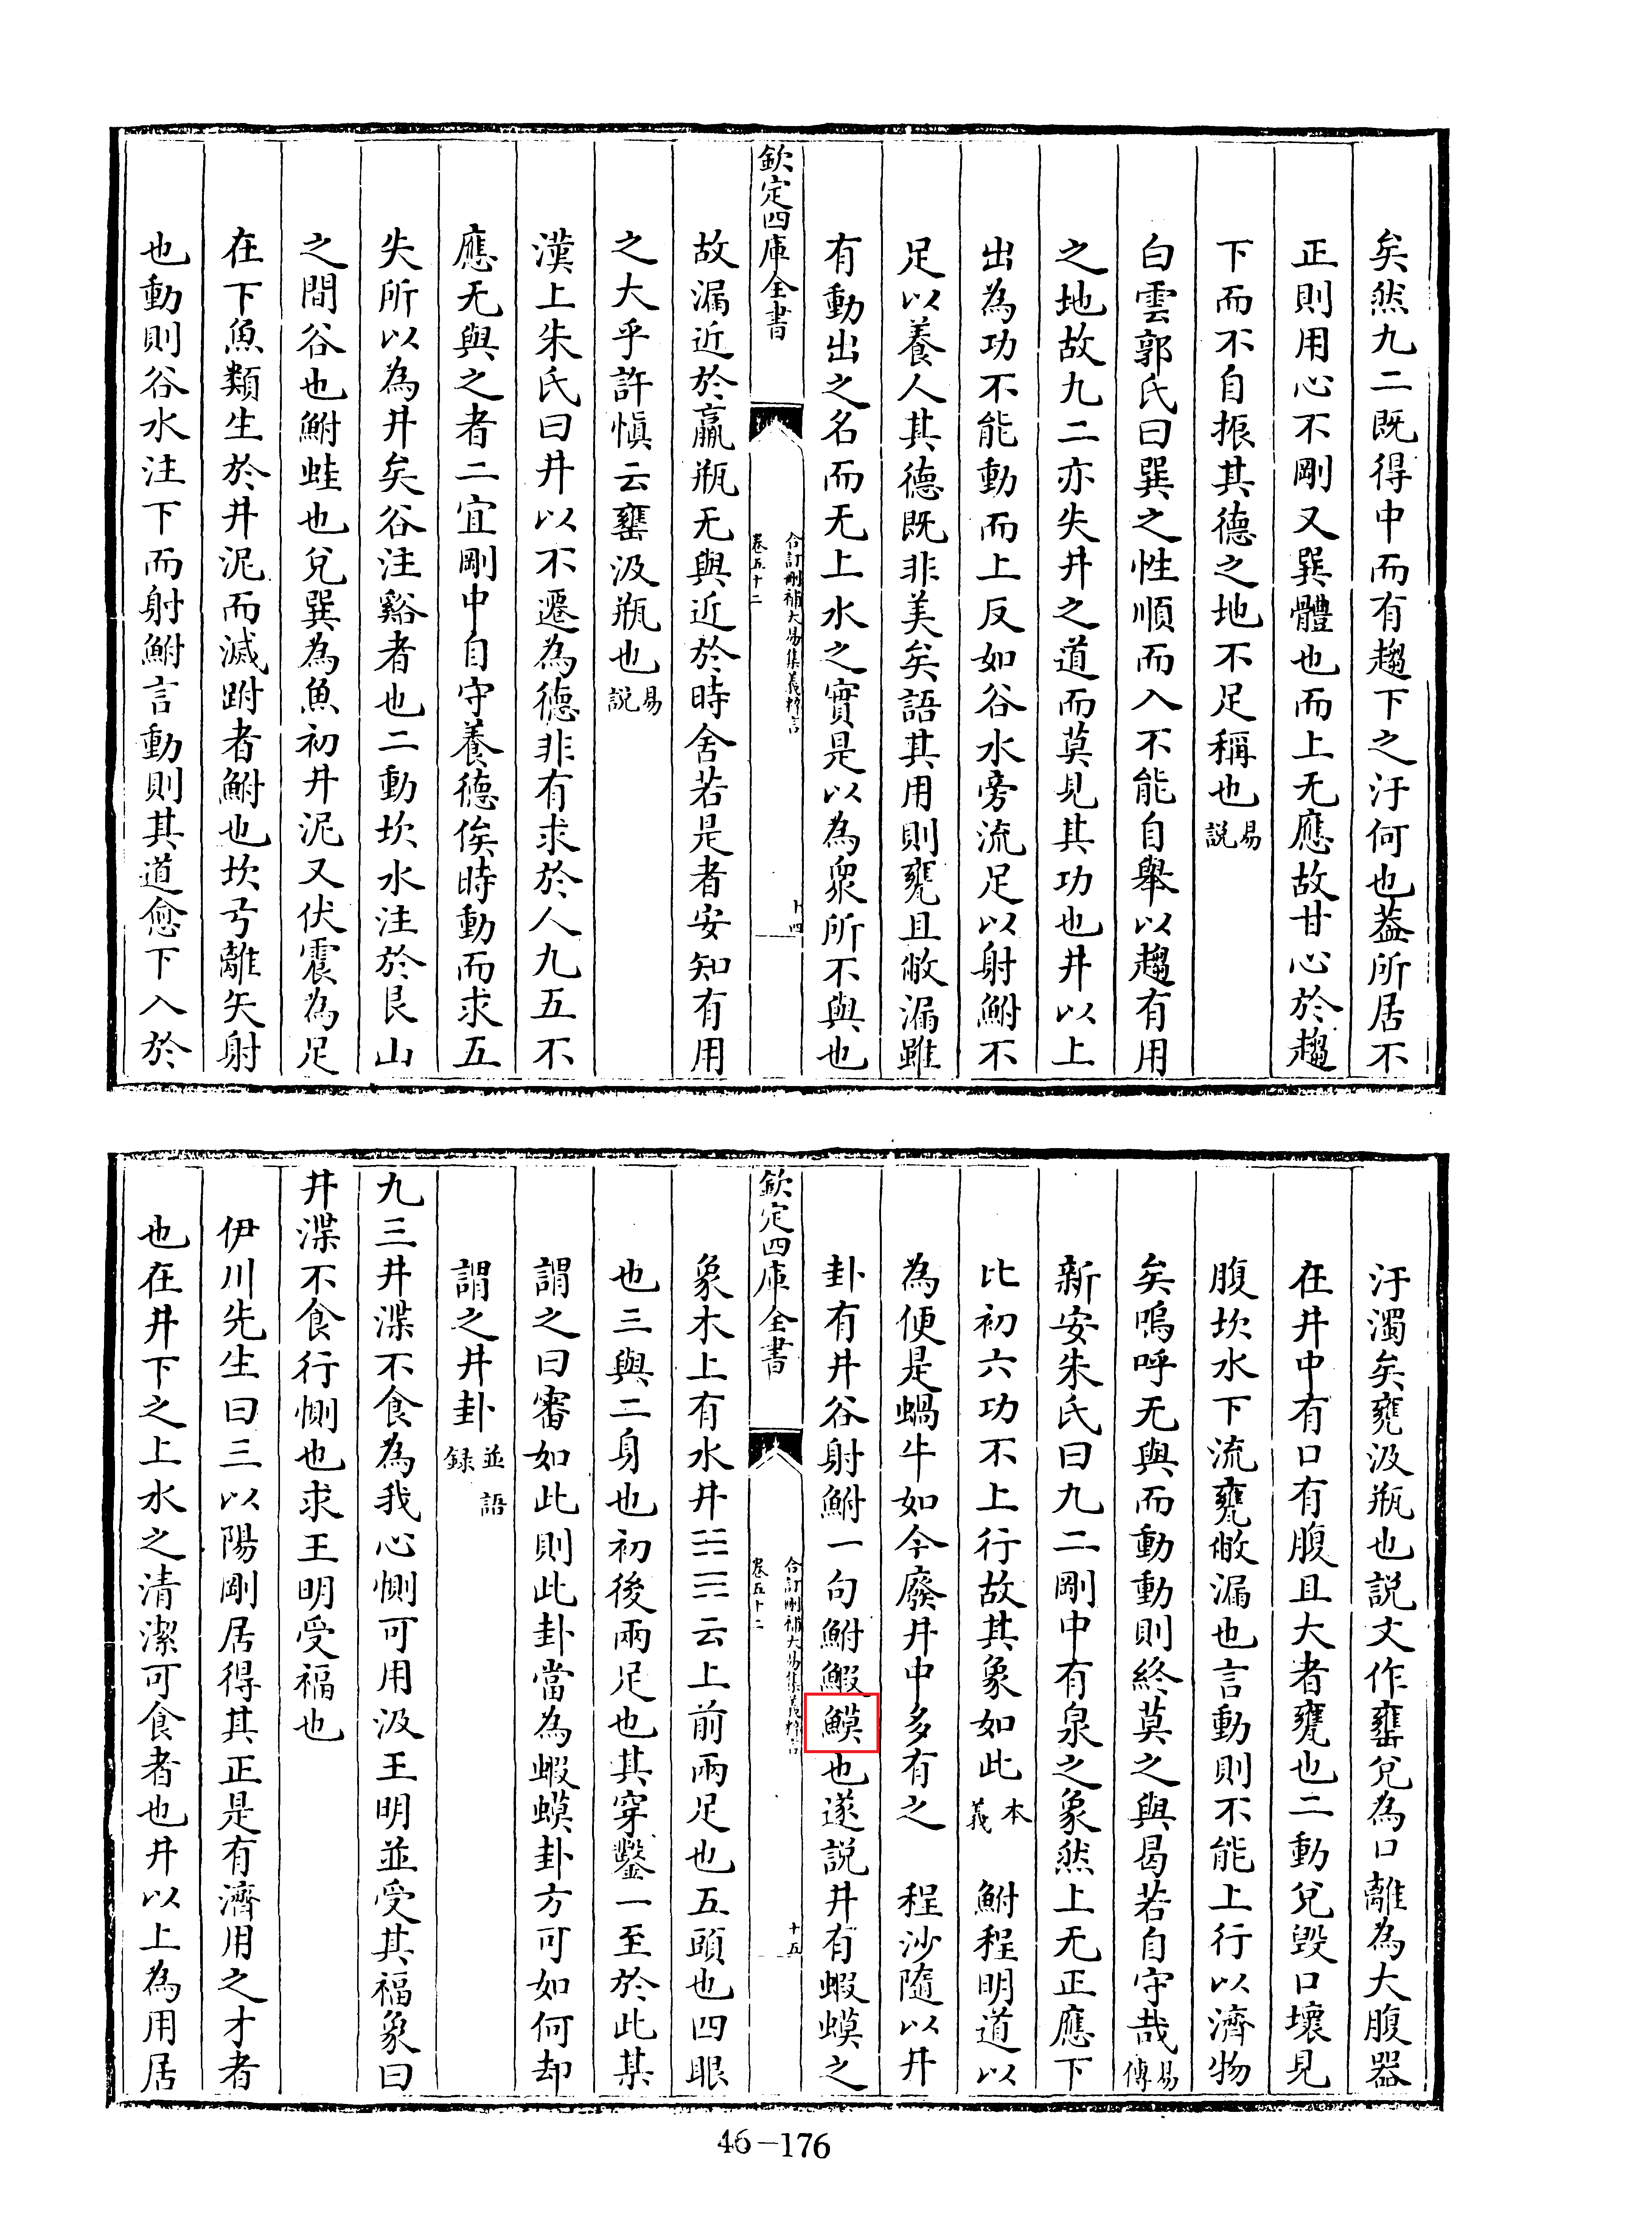 矣然九二既得中而有趨下之汙何也蓋所居不
正則用心不剛又巽體也而上无應故甘心於趨
下而不自振其德之地不足稱也易說
白雲郭氏曰巽之性順而入不能自舉以趨有用
之地故九二亦失井之道而莫見其功也井以上
出為功不能動而上反如谷水旁流足以射鮒不
足以養人其德既非美矣語其用則甕且敝漏雖
有動出之名而无上水之實是以為衆所不與也
欽定四庫全書
合訂刪補大易集義粹言
卷五十二
十四
故漏近於羸瓶无與近於時舍若是者安知有用
之大乎許愼云罋汲瓶也易說
漢上朱氏曰井以不遷為德非有求於人九五不
應无與之者二宜剛中自守養德俟時動而求五
失所以為井矣谷注谿者也二動坎水注於艮山
之間谷也鮒蛙也兌巽為魚初井泥又伏震為足
在下魚類生於井泥而滅跗者鮒也坎弓離矢射
也動則谷水注下而射鮒言動則其道愈下入於
汙濁矣甕汲瓶也說文作罋兌為口離為大腹器
在井中有口有腹且大者甕也二動兌毀口壞見
腹坎水下流甕敝漏也言動則不能上行以濟物
矣嗚呼无與而動動則終莫之與曷若自守哉易傳
新安朱氏曰九二剛中有泉之象然上无正應下
比初六功不上行故其象如此本義　鮒程明道以
為便是蝸牛如今廢井中多有之　程沙隨以井
卦有井谷射鮒一句鮒鰕䱯也遂說井有蝦蟆之
欽定四庫全書
合訂刪補大易集義粹言
卷五十二
十五
象木上有水井☵☴云上前兩足也五頭也四眼
也三與二身也初後兩足也其穿鑿一至於此某
謂之曰審如此則此卦當為蝦蟆卦方可如何却
謂之井卦並語録
九三井渫不食為我心惻可用汲王明並受其福象曰
井渫不食行惻也求王明受福也
伊川先生曰三以陽剛居得其正是有濟用之才者
也在井下之上水之清潔可食者也井以上為用居
46-176